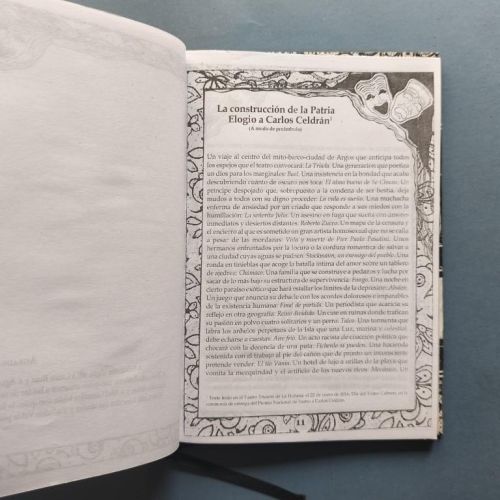 La construcción de la Patria
Elogio a Carlos Celdrán¹
(A modo de preámbulo)
Un viaje al centro del mito-barco-ciudad de Argos que anticipa todos
los espejos que el teatro convocará: La Tríada. Una generación que poetiza
un dios para los marginales: Baal. Una insistencia en la bondad que acaba
descubriendo cuánto de oscuro nos toca: El alma buena de Se Chuan. Un
príncipe despojado que, sobrepuesto a la condena de ser bestia, dejó
mudos a todos con su digno proceder: La vida es sueño. Una muchacha
enferma de ansiedad por un criado que responde a sus miedos con la
humillación: La señorita Julia. Un asesino en fuga que sueña con amores
inmediatos y desiertos distantes: Roberto Zucco. Un mapa de la censura y
el encierro al que es sometido un gran artista homosexual que no se calla
a pesar de las mordazas: Vida y muerte de Pier Paolo Pasolini. Unos
hermanos enfrentados por la locura o la cordura romántica de salvar a
una ciudad cuyas aguas se pudren: Stockmann, un enemigo del pueblo. Una
ronda en tinieblas que acoge la batalla íntima del amor sobre un tablero
de ajedrez: Chamaco. Una familia que se construye a pedazos y lucha por
sacar de lo más bajo su estructura de supervivencia: Fango. Una noche en
cierto paraíso exótico que hará estallar los límites de la depresión: Abalon.
Un juego que anuncia su debacle con los acordes dolorosos e imparables
de la existencia humana: Final de partida. Un periodista que acaricia su
reflejo en otra geografía: Reino dividido. Un cuse en ruinas donde trafican
su pasión en polvo cuatro solitarios y un perro: Talco. Una tormenta que
labra los anhelos perpetuos de la Isla que una Luz, marina y celestial,
debe echarse a cuestas: Aire frío. Un acto racista de cuestión política que
chocará con la decencia de una puta: Fichenla si pueden. Una hacienda
sostenida con el trabajo al pie del cañón que de pronto un inconsciente
pretende vender: El tío Vania. Un hotel de lujo a orillas de la playa que
vomita la mezquindad y el artificio de los nuevos ricos: Mecánica. Un
¹ Texto leído en el Teatro Trianón de La Habana el 22 de enero de 2016, Día del Teatro Cubano, en la
ceremonia de entrega del Premio Nacional de Teatro a Carlos Celdrán.
11